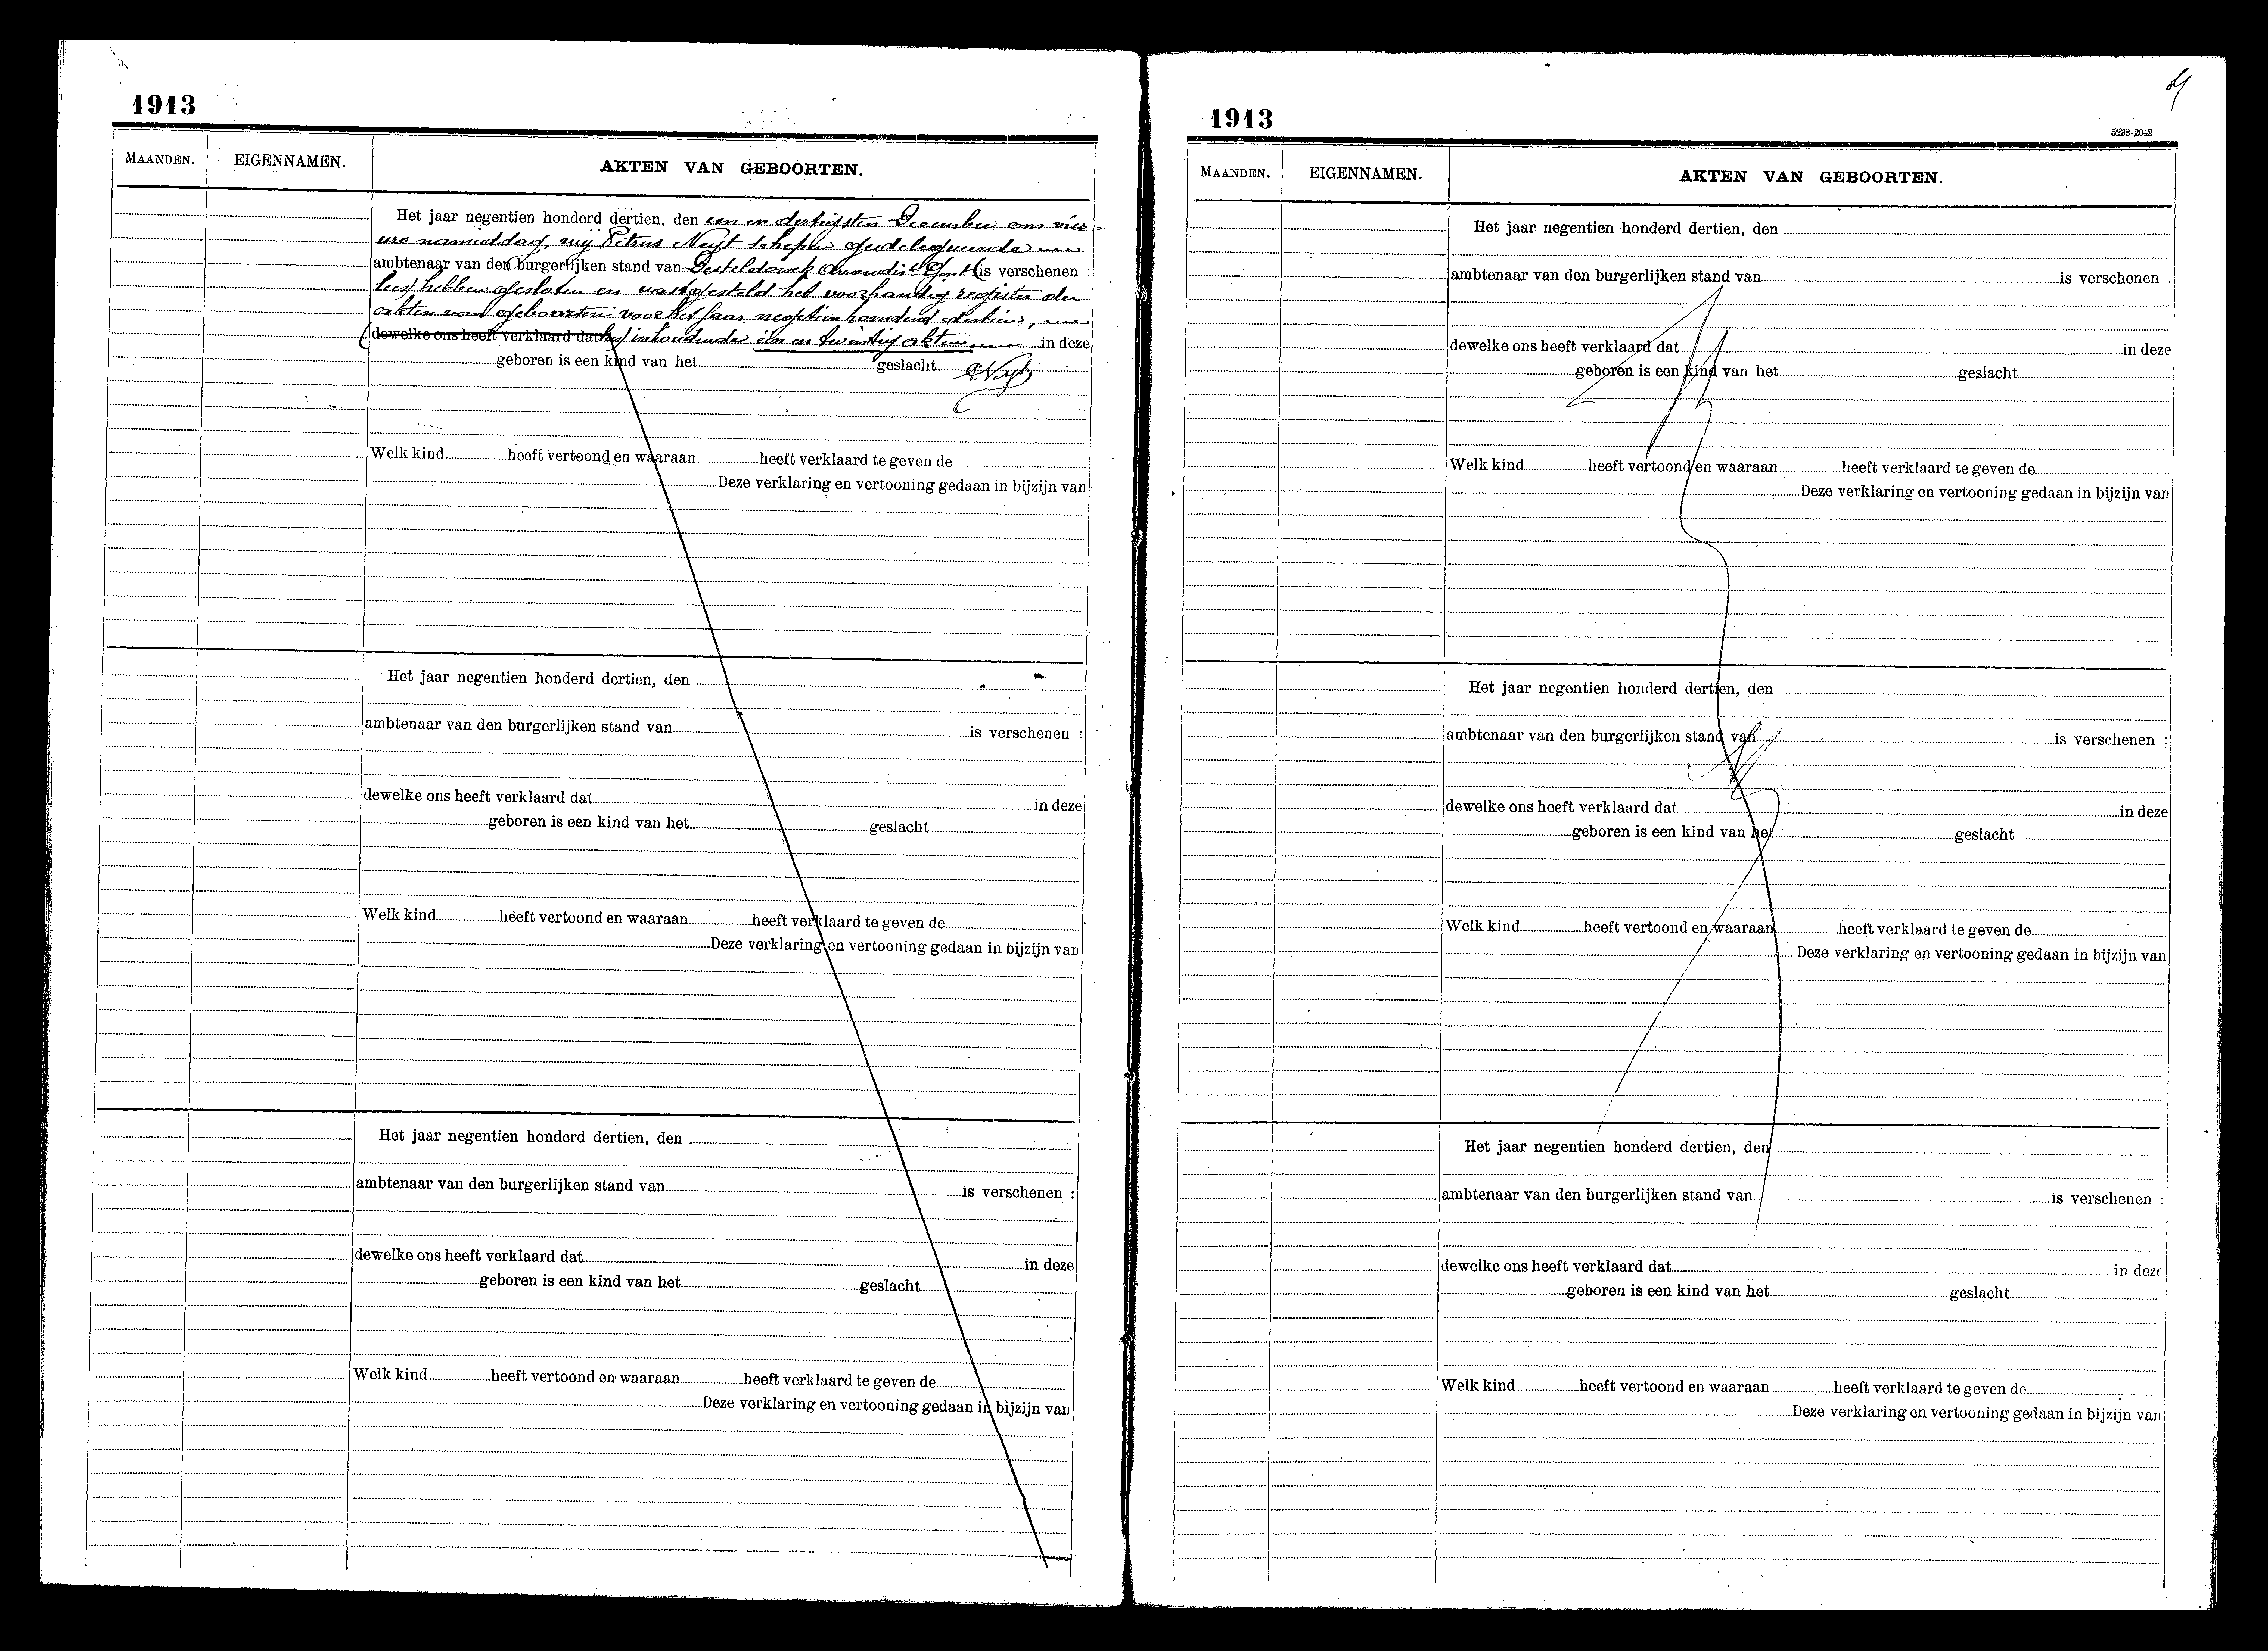 1913
MAANDEN. EIGENNAMEN. AKTEN VAN GEBOORTEN.
Het jaar negentien honderd dertien, den een en dertigsten December om vier
ure namiddag, wij Petrus Neyt schepen gedelegueerde
ambtenaar van den burgerlijken stand van Desteldonck Arrondist Gent (is verschenen :
lees) hebben gesloten en vastgesteld het voorhandig register der
akten van geboorten voor het jaar negentien honderd dertien,
(dewelke ons heeft verklaard dat lees) inhoudende een en twintig akten. in deze
geboren is een kind van het geslacht P. Neyt
Welk kind heeft vertoond en waaraan heeft verklaard te geven de
Deze verklaring en vertooning gedaan in bijzijn van
Het jaar negentien honderd dertien, den
ambtenaar van den burgerlijken stand van is verschenen :
dewelke ons heeft verklaard dat in deze
geboren is een kind van het geslacht
Welk kind heeft vertoond en waaraan heeft verklaard te geven de
Deze verklaring en vertooning gedaan in bijzijn van
Het jaar negentien honderd dertien, den
ambtenaar van den burgerlijken stand van is verschenen :
dewelke ons heeft verklaard dat in deze
geboren is een kind van het geslacht
Welk kind heeft vertoond en waaraan heeft verklaard te geven de
Deze verklaring en vertooning gedaan in bijzijn van
1913
5238-2042
MAANDEN. EIGENNAMEN. AKTEN VAN GEBOORTEN.
Het jaar negentien honderd dertien, den
ambtenaar van den burgerlijken stand van is verschenen :
dewelke ons heeft verklaard dat in deze
geboren is een kind van het geslacht
Welk kind heeft vertoond en waaraan heeft verklaard te geven de
Deze verklaring en vertooning gedaan in bijzijn van
Het jaar negentien honderd dertien, den
ambtenaar van den burgerlijken stand van is verschenen :
dewelke ons heeft verklaard dat in deze
geboren is een kind van het geslacht
Welk kind heeft vertoond en waaraan heeft verklaard te geven de
Deze verklaring en vertooning gedaan in bijzijn van
Het jaar negentien honderd dertien, den
ambtenaar van den burgerlijken stand van is verschenen :
dewelke ons heeft verklaard dat in deze
geboren is een kind van het geslacht
Welk kind heeft vertoond en waaraan heeft verklaard te geven de
Deze verklaring en vertooning gedaan in bijzijn van